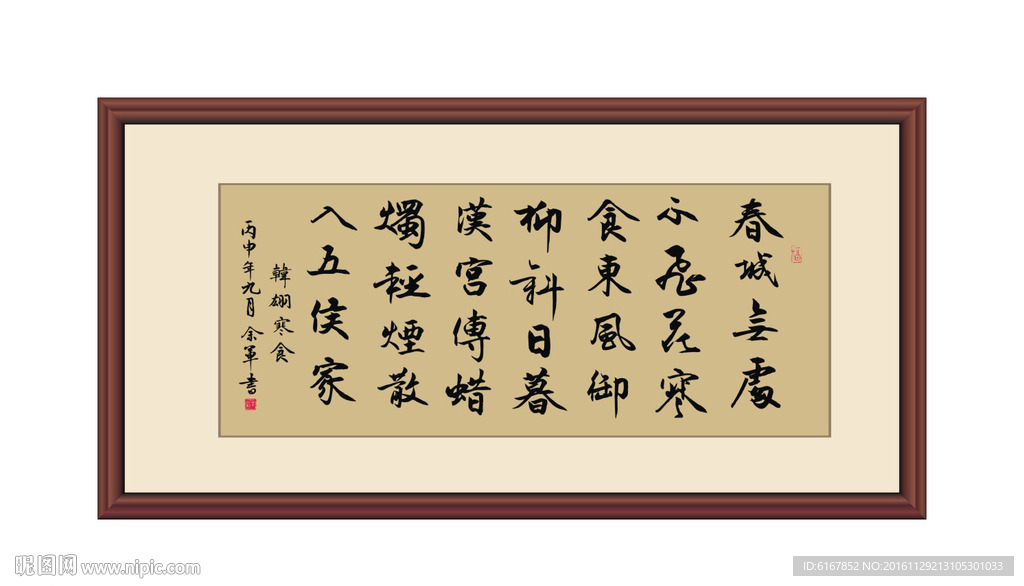 春城無處
不飛花寒
食東風御
柳斜日暮
漢宮傳蜡
燭輕煙散
入五侯家
韓翃寒食
丙申年九月余軍書
昵图网 www.nipic.com
ID:6167852 NO:20161129213105301033